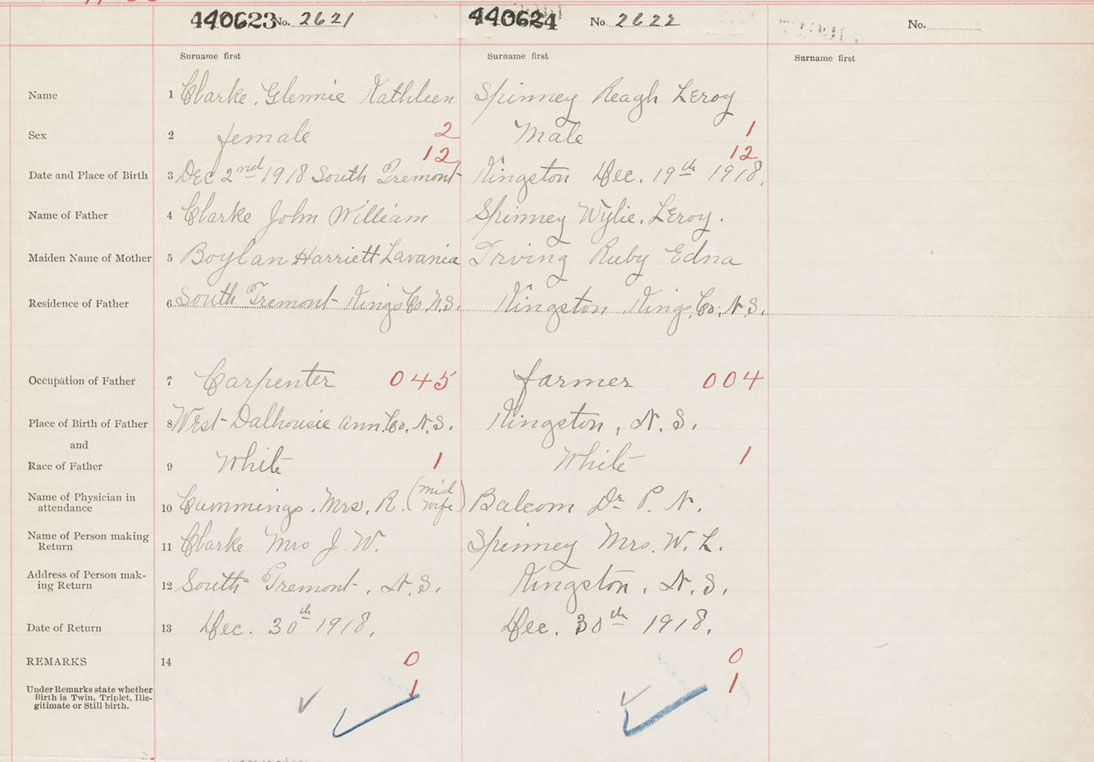 440623 No. 2621 440624 No 2622 No.
Surname first Surname first Surname first
Name 1 Clarke, Glennie Kathleen Spinney Reagh Leroy
Sex 2 female 2 Male 1
12 12
Date and Place of Birth 3 Dec 2nd 1918 South Tremont Kingston Dec. 19th 1918.
Name of Father 4 Clarke John William Spinney Wylie. Leroy.
Maiden Name of Mother 5 Boylan Harriett Lavania Irving Ruby Edna
Residence of Father 6 South Tremont Kings Co. N.S. Kingston King, Co, N.S.
Occupation of Father 7 Carpenter 045 farmer 004
Place of Birth of Father 8 West Dalhousie Ann. Co, N.S. Kingston, N.S.
and
Race of Father 9 White 1 White 1
Name of Physician in
attendance 10 Cummings. Mrs. R. (mid wife) Balcom Dr P. N.
Name of Person making
Return 11 Clarke Mrs J. W. Spinney Mrs. W. L.
Address of Person mak-
ing Return 12 South Tremont, N.S. Kingston, N.S.
Date of Return 13 Dec. 30th 1918. Dec. 30th 1918.
REMARKS 14 0 0
Under Remarks state whether
Birth is Twin, Triplet, Ille-
gitimate or Still birth. 1 1